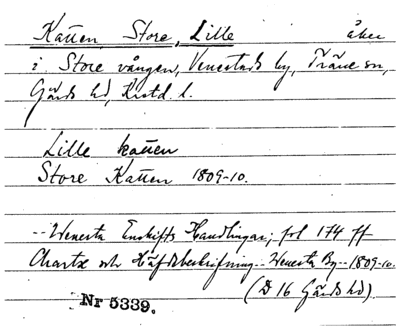 Katten, Store, Lille åker
i Store vången, Venestads by, Träne sn,
Gärds hd, Kristd. l.
Lille katten
Store Katten 1809-10.
-- Wenesta Enskifts Handlingar; fol 174 ff
Chartæ och Häfdebeskrifning -- Wenesta By -- 1809-10.
(D 16 Gärds hd).
Nr 5339.